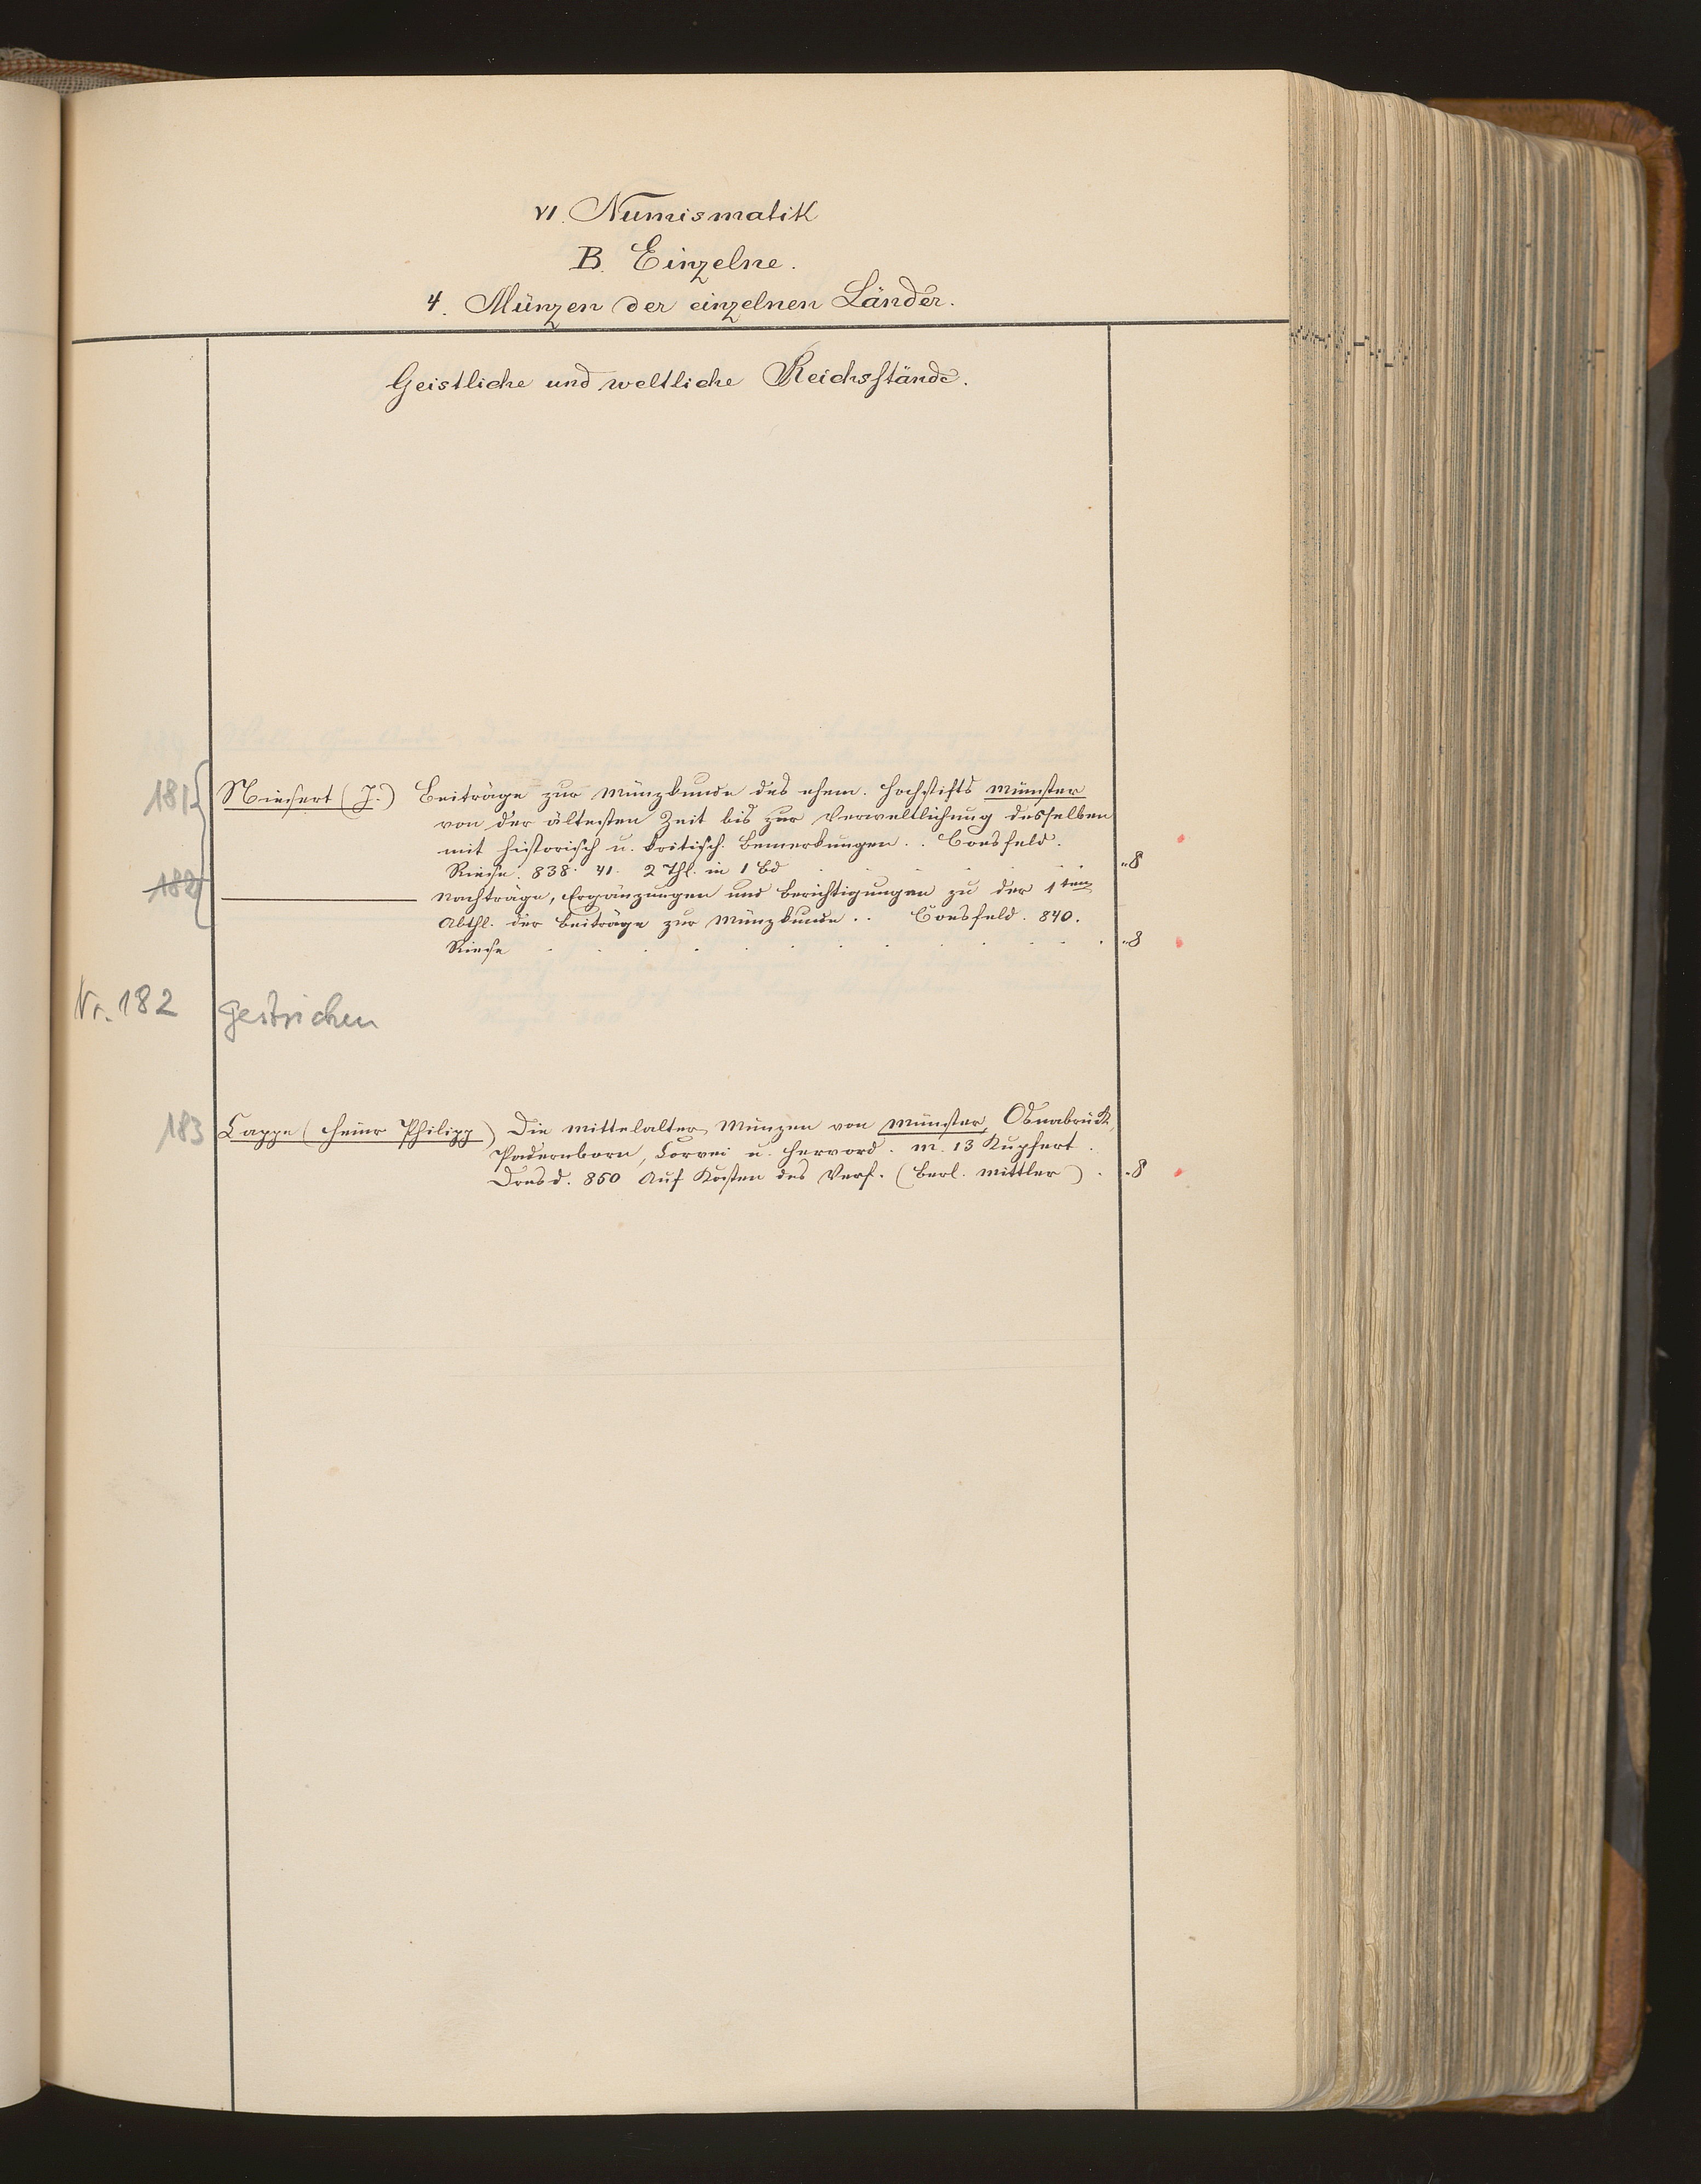 VI. Numismatik
B. Einzelne.
4. Münzen der einzelnen Länder.
Geistliche und weltliche Reichsstände.
181 Niesert (J.) Beiträge zur Münzkunde des ehem. Hochstifts Münster
von der ältesten Zeit bis zur Verweltlichung desselben
mit historisch u. kritisch. Bemerkungen.. Coesfeld.
Riese. 838. 41. 2 Thl. in 1 Bd 8
182 Nachträge, Ergänzungen und Berichtigungen zu der 1ten
Abthl. der Beiträge zur Münzkunde.. Coesfeld. 840.
Riese 8
Nr. 182 gestrichen
183 Cappe (Heinr Philipp) Die Mittelalter Münzen von Münster, Osnabrück,
Padernborn, Corvei u. Hervord. m. 13 Kupfert.
Dresd. 850 Auf Kosten des Verf. (Berl. Mittler). 8